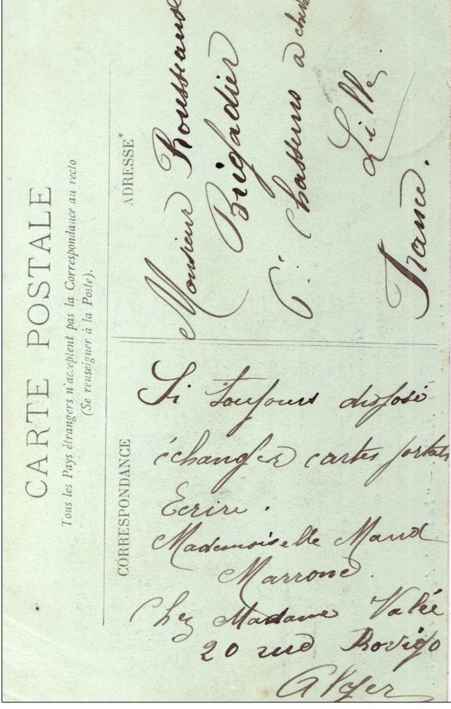 CARTE POSTALE
Tous les Pays étrangers n'acceptent pas la Correspondance au recto
(Se renseigner à la Poste).
CORRESPONDANCE
ADRESSE*
Si toujours disposé
échanger cartes postales
Ecrire.
Mademoiselle Maud
Marrone.
Chez Madame Valée
20 rue Rovigo
Alger
Monsieur Rousseau
Brigadier
6e Chasseurs à
Lille
France.